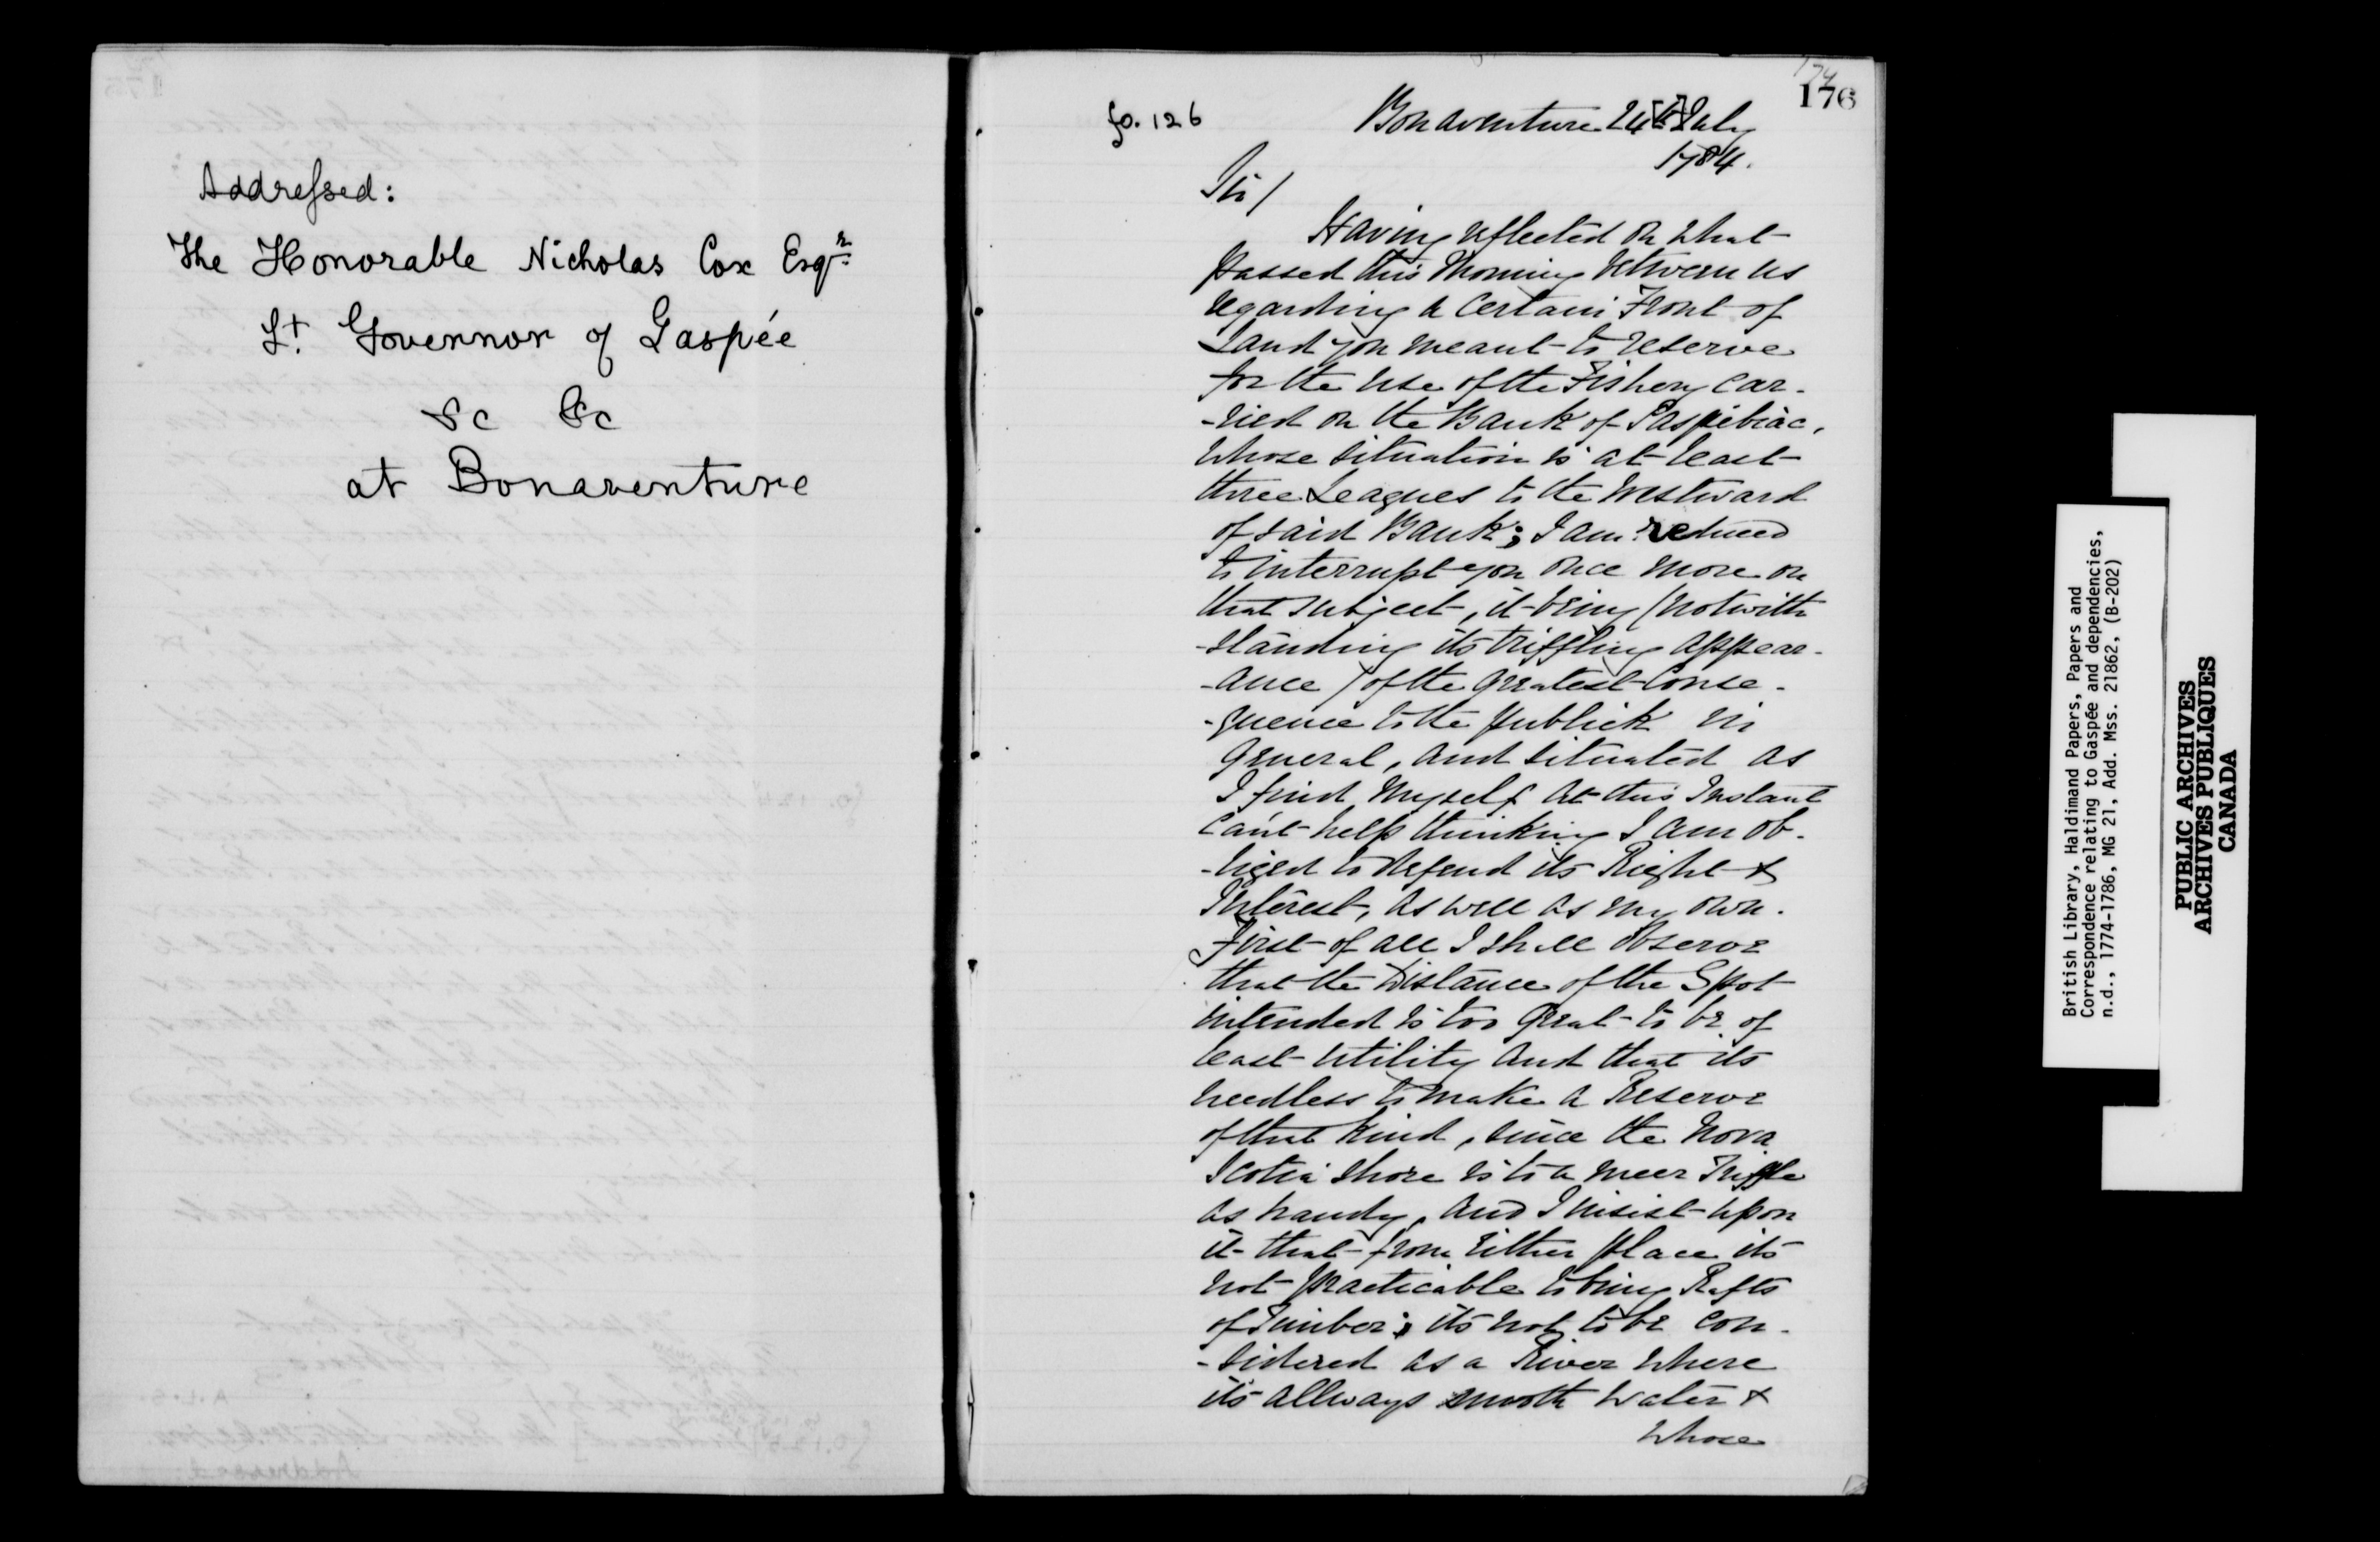 Addressed:
The Honorable Nicholas Cox Esqr.
Lt. Governor of Gaspée
&c &c
at Bonaventure
174
176
fo. 126
Bonaventure 24[th] July
1784.
Sir/
Having reflected on what
passed this Morning between us
regarding a certain Front of
Land you meant to reserve
for the use of the Fishery car-
-ried on the Bank of Paspébiac,
whose situation is at least
three Leagues to the Westward
of said Bank; I am reduced
to interrupt you once more on
that subject, it being (notwith
-standing its triffling appear-
-ance) of the greatest Conse-
-quence to the publick in
general, and situated as
I find myself at this Instant
can't help thinking I am ob-
-liged to defend its Right &
Interest, as well as my own.
First of all I shall observe
that the Distance of the Spot
intended is too great to be of
least utility and that its
needless to make a Reserve
of that kind, since the Nova
Scotia Shore is to a meer Triffle
as handy, and I insist upon
it that from either place its
not practicable to bring Rafts
of Timber; its not to be con-
-sidered as a River where
its allways smooth water &
whose
British Library, Haldimand Papers, Papers and
Correspondence relating to Gaspée and dependencies,
n.d., 1774-1786, MG 21, Add. Mss. 21862, (B-202)
PUBLIC ARCHIVES
ARCHIVES PUBLIQUES
CANADA